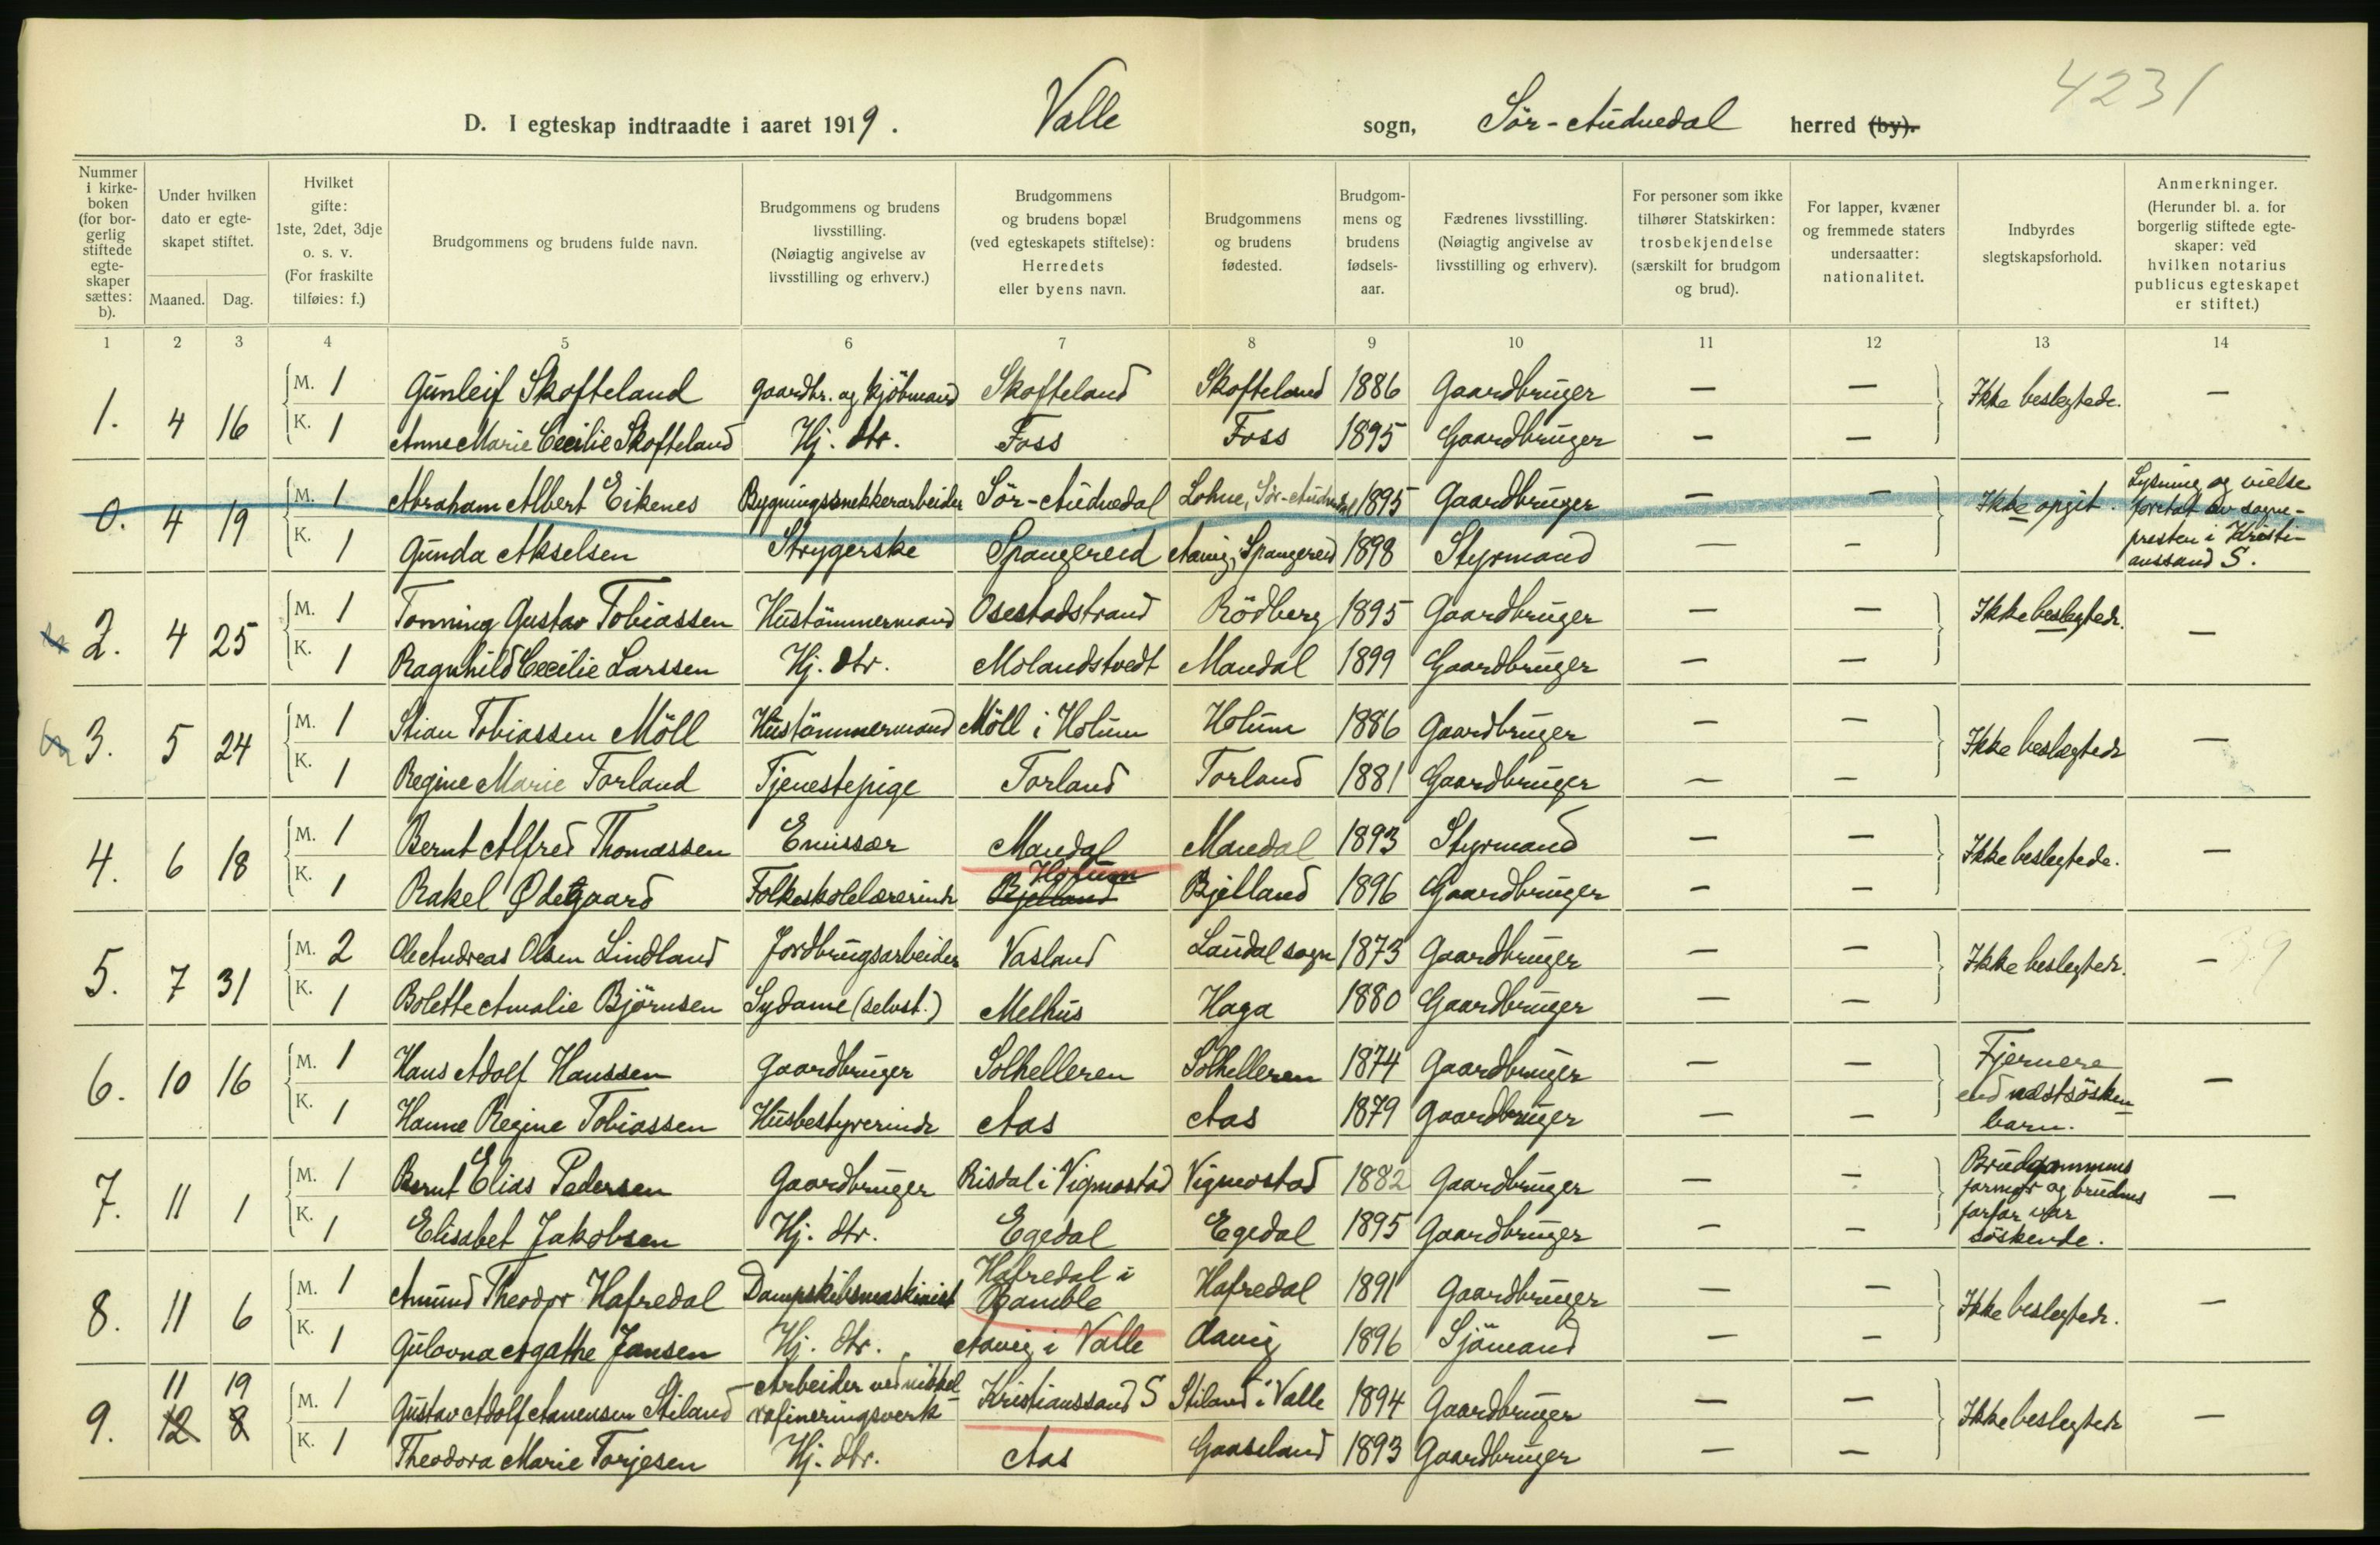 4231
D. I egteskap indtraadte i aaret 1919. Valle sogn, Sør-Audnedal herred (by).
Nummer i kirkeboken (for borgerlig stiftede egteskaper sættes: b).
Under hvilken dato er egteskapet stiftet.
Maaned. Dag.
Hvilket gifte: 1ste, 2det, 3dje o. s. v. (For fraskilte tilføies: f.)
Brudgommens og brudens fulde navn.
Brudgommens og brudens livsstilling. (Nøiagtig angivelse av livsstilling og erhverv.)
Brudgommens og brudens bopæl (ved egteskapets stiftelse): Herredets eller byens navn.
Brudgommens og brudens fødested.
Brudgommens og brudens fødselsaar.
Fædrenes livsstilling. (Nøiagtig angivelse av livsstilling og erhverv).
For personer som ikke tilhører Statskirken: trosbekjendelse (særskilt for brudgom og brud).
For lapper, kvæner og fremmede staters undersaatter: nationalitet.
Indbyrdes slegtskapsforhold.
Anmerkninger. (Herunder bl. a. for borgerlig stiftede egteskaper: ved hvilken notarius publicus egteskapet er stiftet.)
1 2 3 4 5 6 7 8 9 10 11 12 13 14
1. 4 16 M. 1 Gunleif Skofteland gaardbr. og kjöbmand Skofteland Skofteland 1886 Gaardbruger — — Ikke beslegtede. —
K. 1 Anne Marie Cecilie Skofteland Hj. dtr. Foss Foss 1895 Gaardbruger — —
0. 4 19 M. 1 Abraham Albert Eikenes Bygningssnekkerarbeider Sör-Audnedal Lohne, Sör-Audnedal 1895 Gaardbruger — — Ikke opgit. Lysning og vielse foretat av sognepresten i Kristianssand S.
K. 1 Gunda Akselsen Strygerske Spangereid Aavig, Spangereid 1898 Styrmand — —
2. 4 25 M. 1 Tønning Gustav Tobiassen Hustömmermand Osestadstrand Rödberg 1895 Gaardbruger — — Ikke beslegtede. —
K. 1 Ragnhild Cecilie Larssen Hj. dtr. Molandstvedt Mandal 1899 Gaardbruger — —
3. 5 24 M. 1 Stian Tobiassen Möll Hustömmermand Möll i Holum Holum 1886 Gaardbruger — — Ikke beslægtede —
K. 1 Regine Marie Torland Tjenestepige Torland Torland 1881 Gaardbruger — —
4. 6 18 M. 1 Bernt Alfred Thomassen Emissær Mandal Mandal 1893 Styrmand — — Ikke beslegtede. —
K. 1 Rakel Ødegaard Folkeskolelærerinde Bjelland Holum Bjelland 1896 Gaardbruger — —
5. 7 31 M. 2 Ole Andreas Olsen Lindland Jordbrugsarbeider Vasland Laudal sogn 1873 Gaardbruger — — Ikke beslegtede. —
K. 1 Bolette Amalie Björnsen Sydame (selvst.) Melhus Haga 1880 Gaardbruger — —
6. 10 16 M. 1 Hans Adolf Hanssen Gaardbruger Solhelleren Solhelleren 1874 Gaardbruger — — Fjernere end næstsöskenbarn. —
K. 1 Hanne Regine Tobiassen Husbestyrerinde Aas Aas 1879 Gaardbruger — —
7. 11 1 M. 1 Bernt Elias Pedersen Gaardbruger Risdal i Vigmostad Vigmostad 1882 Gaardbruger — — Brudgommens farmor og brudens farfar var söskende. —
K. 1 Elisabet Jakobsen Hj. dtr. Egedal Egedal 1895 Gaardbruger — —
8. 11 6 M. 1 Amund Theodor Hafredal Dampskibsmaskinist Hafredal i Bamble Hafredal 1891 Gaardbruger — — Ikke beslegtede. —
K. 1 Gulovna Agathe Jansen Hj. dtr. Aavig i Valle Aavig 1896 Sjömand — —
9. 12 8 11 19 M. 1 Gustav Adolf Aanensen Stiland Arbeider ved nikkelrafineringsverk Kristianssand S Stiland i Valle 1894 Gaardbruger — — Ikke beslegtede —
K. 1 Theodora Marie Torjesen Hj. dtr. Aas Gaaseland 1893 Gaardbruger — —